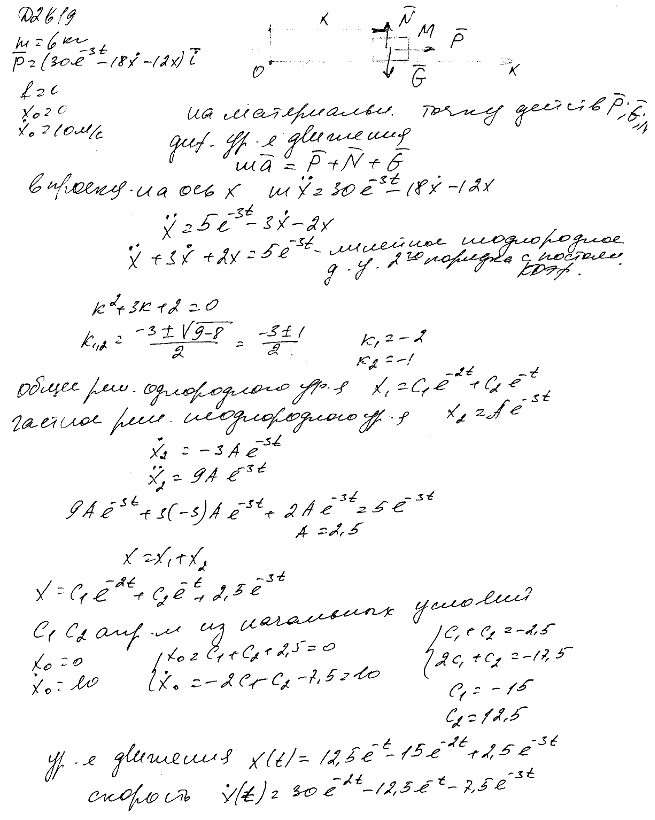 Д2619
m = 6 кг
P̄ = (30e^{-3t} - 18ẋ - 12x) ī
x₀ = 0
ẋ₀ = 10 м/с
K
N̄
M
P̄
O
Ḡ
x
на материальн. точку действ P̄, Ḡ, N̄
диф. ур-е движения
mā = P̄ + N̄ + Ḡ
в проекц. на ось x mẍ = 30e^{-3t} - 18ẋ - 12x
ẍ = 5e^{-3t} - 3ẋ - 2x
ẍ + 3ẋ + 2x = 5e^{-3t} - линейное неоднородное
д. у. 2го порядка с постоян.
коэф.
k² + 3k + 2 = 0
k₁,₂ = (-3 ± √(9-8))/2 = (-3 ± 1)/2
k₁ = -2
k₂ = -1
общее реш. однородного ур-я x₁ = C₁e^{-2t} + C₂e^{-t}
частное реш. неоднородного ур-я x₂ = Ae^{-3t}
ẋ₂ = -3Ae^{-3t}
ẍ₂ = 9Ae^{-3t}
9Ae^{-3t} + 3(-3)Ae^{-3t} + 2Ae^{-3t} = 5e^{-3t}
A = 2,5
x = x₁ + x₂
x = C₁e^{-2t} + C₂e^{-t} + 2,5e^{-3t}
C₁ C₂ опр-м из начальных условий
x₀ = 0 { x₀ = C₁ + C₂ + 2,5 = 0 { C₁ + C₂ = -2,5
ẋ₀ = 10 { ẋ₀ = -2C₁ - C₂ - 7,5 = 10 { 2C₁ + C₂ = -17,5
C₁ = -15
C₂ = 12,5
ур-е движения x(t) = 12,5e^{-t} - 15e^{-2t} + 2,5e^{-3t}
скорость ẋ(t) = 30e^{-2t} - 12,5e^{-t} - 7,5e^{-3t}